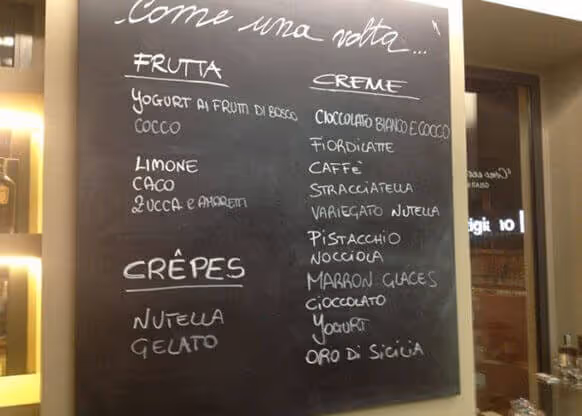 Come una volta...
FRUTTA
YOGURT AI FRUTTI DI BOSCO
COCCO
LIMONE
CACO
ZUCCA e AMARETTI
CRÊPES
NUTELLA
GELATO
CREME
CIOCCOLATO BIANCO E COCCO
FIORDILATTE
CAFFÈ
STRACCIATELLA
VARIEGATO NUTELLA
PISTACCHIO
NOCCIOLA
MARRON GLACES
CIOCCOLATO
YOGURT
ORO DI SICILIA